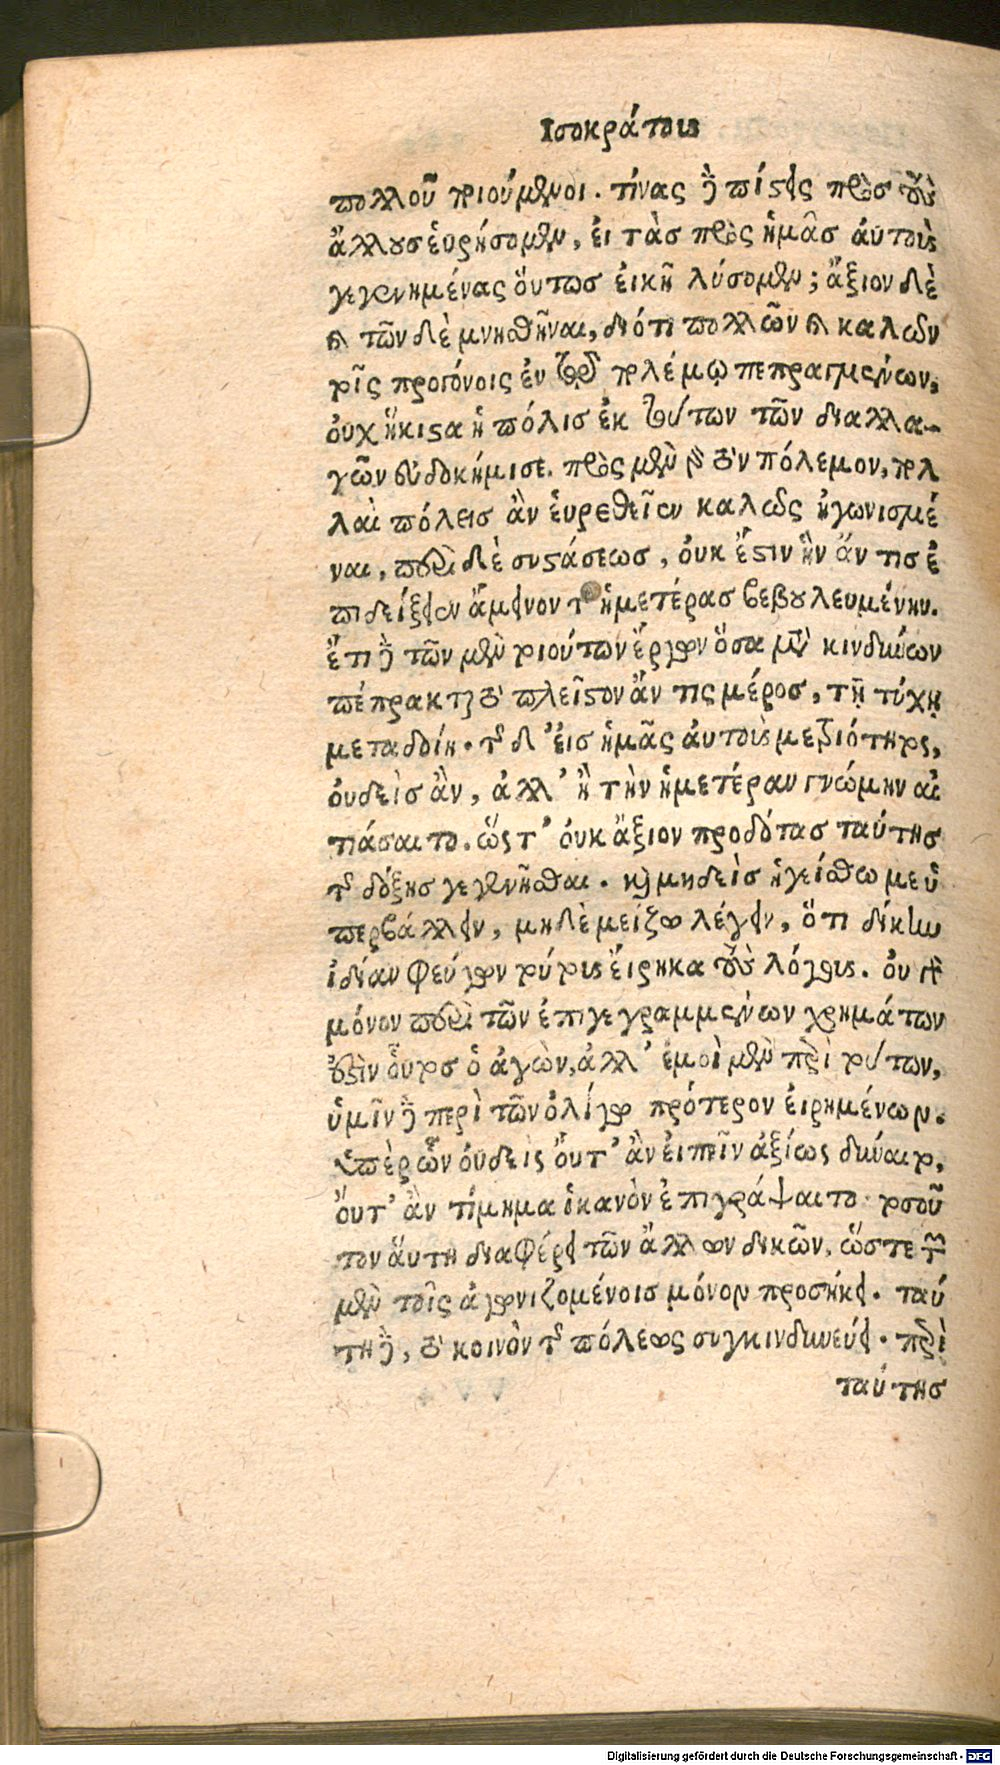 Ισοκράτους
πολλοῦ ποιούμενοι. τίνας δὲ πίστεις πρὸσ τοὺς
ἄλλουσ ἑυρήσομεν, ἐι τὰσ πρὸς ἡμᾶσ ἀυτοὺς
γεγενημένας ὅυτωσ ἐικῆ λύσομεν; ἄξιον δὲ
καὶ τῶνδὲ μνησθῆναι, διότι πολλῶν καὶ καλῶν
τοῖς προγόνοις ἐν τῷ πολέμῳ πεπραγμένων,
ὀυχ ἥκιστα ἡ πόλισ ἐκ τούτων τῶν διαλλα-
γῶν ἐυδοκήμισε. πρὸς μὲν γὰρ τὸν πόλεμον, πολ
λαὶ πόλεισ ἂν ἑυρεθεῖεν καλῶς ἠγωνισμέ
ναι, περὶ δὲ συστάσεωσ, ὀυκ ἔστιν ἣν ἄν τισ ἐ
πιδείξειεν ἄμεινον τῆς ἡμετέρασ βεβουλευμένην.
ἔτι δὲ τῶν μὲν τοιούτων ἔργων ὅσα μετὰ κινδύνων
πέπρακται τὸ πλεῖστον ἄν τις μέρος, τῇ τύχῃ
μεταδοίη. τῆς δ' ἐισ ἡμᾶς ἀυτοὺς μετριότητος,
ὀυδεὶσ ἂν, ἀλλ' ἢ τὴν ἡμετέραν γνώμην αἰ
τιάσαιτο. ὥςτ' ὀυκ ἄξιον προδότασ ταύτησ
τῆς δόξησ γενέσθαι. καὶ μηδεὶσ ἡγείσθω με ὑ
περβάλλειν, μηδὲ μείζω λέγειν, ὅτι δίκην
ἰδίαν φεύγων τούτους ἔιρηκα τοὺς λόγους. ὀυ γὰρ
μόνον περὶ τῶν ἐπιγεγραμμένων χρημάτων
ἐστὶν οὗτοσ ὁ ἀγὼν, ἀλλ' ἐμοὶ μὲν περὶ τούτων,
ὑμῖν δὲ περὶ τῶν ὀλίγω πρότερον ἐιρημένων.
ὑπὲρ ὧν ὀυδεὶς ὄυτ' ἂν ἐιπεῖν ἀξίως δύναιτο,
ὄυτ' ἂν τίμημα ἱκανὸν ἐπιγράψαιτο. τοσοῦ
τον ἅυτη διαφέρει τῶν ἄλλων δικῶν, ὥστε τῶν
μὲν τοῖς ἀγωνιζομένοισ μόνον προσήκει. ταύ
τη δὲ, τὸ κοινὸν τῆς πόλεως συγκινδυνεύει. περὶ
ταύτησ
Digitalisierung gefördert durch die Deutsche Forschungsgemeinschaft - DFG